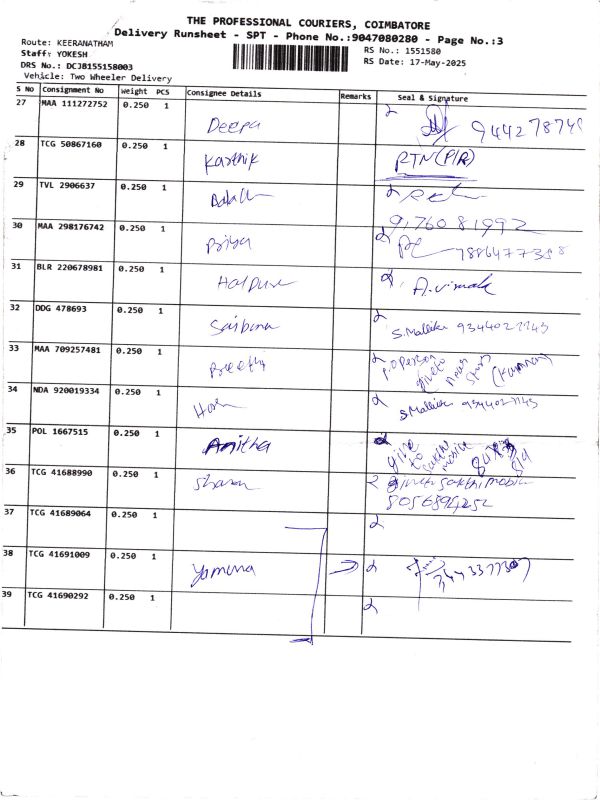 THE PROFESSIONAL COURIERS, COIMBATORE
Delivery Runsheet - SPT - Phone No.:9047080280 - Page No.:3
Route: KEERANATHAM
Staff: YOKESH
RS No.: 1551580
DRS No.: DCJ8155158003
RS Date: 17-May-2025
Vehicle: Two Wheeler Delivery
S No Consignment No Weight PCS Consignee Details Remarks Seal & Signature
27 MAA 111272752 0.250 1
Deepa
28 TCG 50867160 0.250 1
Karthik RTN(P/R)
29 TVL 2906637 0.250 1
9176081992
30 MAA 298176742 0.250 1
Priya
31 BLR 220678981 0.250 1
A. Vimala
32 DDG 478693 0.250 1
S. Mallika
33 MAA 709257481 0.250 1
Preethy person give to near
34 NDA 920019334 0.250 1
S. Mallika
35 POL 1667515 0.250 1
Anitha give to sakthi mobile
36 TCG 41688990 0.250 1
Sharan sakthi mobile
37 TCG 41689064 0.250 1
38 TCG 41691009 0.250 1
Yamuna
39 TCG 41690292 0.250 1